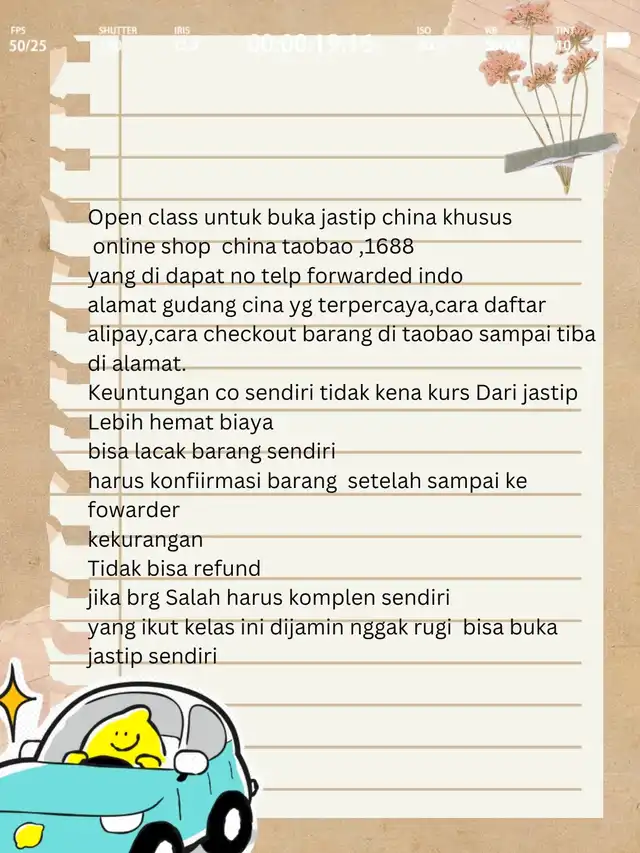 FPS SHUTTER IRIS ISO WB TINT
50/25 00:00:19:16
Open class untuk buka jastip china khusus
online shop china taobao ,1688
yang di dapat no telp forwarded indo
alamat gudang cina yg terpercaya,cara daftar
alipay,cara checkout barang di taobao sampai tiba
di alamat.
Keuntungan co sendiri tidak kena kurs Dari jastip
Lebih hemat biaya
bisa lacak barang sendiri
harus konfiirmasi barang setelah sampai ke
fowarder
kekurangan
Tidak bisa refund
jika brg Salah harus komplen sendiri
yang ikut kelas ini dijamin nggak rugi bisa buka
jastip sendiri